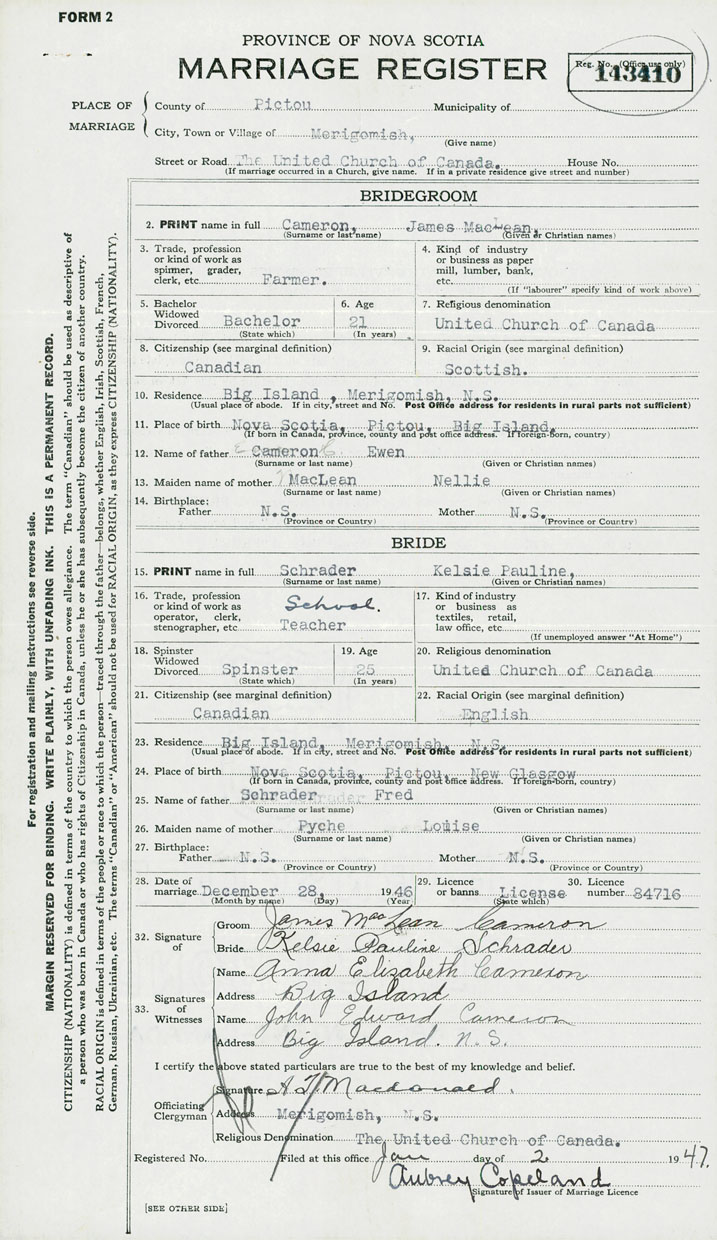 FORM 2
PROVINCE OF NOVA SCOTIA
MARRIAGE REGISTER
Reg. No. (Office use only)
143410
PLACE OF MARRIAGE
County of Pictou Municipality of
City, Town or Village of Merigomish,
(Give name)
Street or Road The United Church of Canada. House No.
(If marriage occurred in a Church, give name. If in a private residence give street and number)
BRIDEGROOM
2. PRINT name in full Cameron, James MacLean,
(Surname or last name) (Given or Christian names)
3. Trade, profession or kind of work as spinner, grader, clerk, etc. Farmer.
4. Kind of industry or business as paper mill, lumber, bank, etc.
(If "labourer" specify kind of work above)
5. Bachelor Widowed Divorced Bachelor
(State which)
6. Age 21
(In years)
7. Religious denomination
United Church of Canada
8. Citizenship (see marginal definition)
Canadian
9. Racial Origin (see marginal definition)
Scottish.
10. Residence Big Island, Merigomish, N.S.
(Usual place of abode. If in city, street and No. Post Office address for residents in rural parts not sufficient)
11. Place of birth Nova Scotia, Pictou, Big Island,
(If born in Canada, province, county and post office address. If foreign-born, country)
12. Name of father Cameron Ewen
(Surname or last name) (Given or Christian names)
13. Maiden name of mother MacLean Nellie
(Surname or last name) (Given or Christian names)
14. Birthplace:
Father N.S. Mother N.S.
(Province or Country) (Province or Country)
BRIDE
15. PRINT name in full Schrader Kelsie Pauline,
(Surname or last name) (Given or Christian names)
16. Trade, profession or kind of work as operator, clerk, stenographer, etc School. Teacher
17. Kind of industry or business as textiles, retail, law office, etc.
(If unemployed answer "At Home")
18. Spinster Widowed Divorced Spinster
(State which)
19. Age 25
(In years)
20. Religious denomination
United Church of Canada
21. Citizenship (see marginal definition)
Canadian
22. Racial Origin (see marginal definition)
English
23. Residence Big Island, Merigomish, N.S.
(Usual place of abode. If in city, street and No. Post Office address for residents in rural parts not sufficient)
24. Place of birth Nova Scotia, Pictou, New Glasgow
(If born in Canada, province, county and post office address. If foreign-born, country)
25. Name of father Schrader Fred
(Surname or last name) (Given or Christian names)
26. Maiden name of mother Pyche Louise
(Surname or last name) (Given or Christian names)
27. Birthplace:
Father N.S. Mother N.S.
(Province or Country) (Province or Country)
28. Date of marriage December 28, 1946
(Month by name) (Day) (Year)
29. Licence or banns License
(State which)
30. Licence number 84716
32. Signature of
Groom James MacLean Cameron
Bride Kelsie Pauline Schrader
33. Signatures of Witnesses
Name Anna Elizabeth Cameron
Address Big Island
Name John Edward Cameron
Address Big Island. N.S.
I certify the above stated particulars are true to the best of my knowledge and belief.
Officiating Clergyman
Signature Macdonald.
Address Merigomish, N.S.
Religious Denomination The United Church of Canada.
Registered No. Filed at this office Jan day of 2 1947.
Aubrey Copeland
Signature of Issuer of Marriage Licence
[SEE OTHER SIDE]
For registration and mailing instructions see reverse side.
MARGIN RESERVED FOR BINDING. WRITE PLAINLY, WITH UNFADING INK. THIS IS A PERMANENT RECORD.
CITIZENSHIP (NATIONALITY) is defined in terms of the country to which the person owes allegiance. The term "Canadian" should be used as descriptive of
a person who was born in Canada or who has rights of Citizenship in Canada, unless he or she has subsequently become the citizen of another country.
RACIAL ORIGIN is defined in terms of the people or race to which the person—traced through the father—belongs, whether English, Irish, Scottish, French,
German, Russian, Ukrainian, etc. The terms "Canadian" or "American" should not be used for RACIAL ORIGIN, as they express CITIZENSHIP (NATIONALITY).